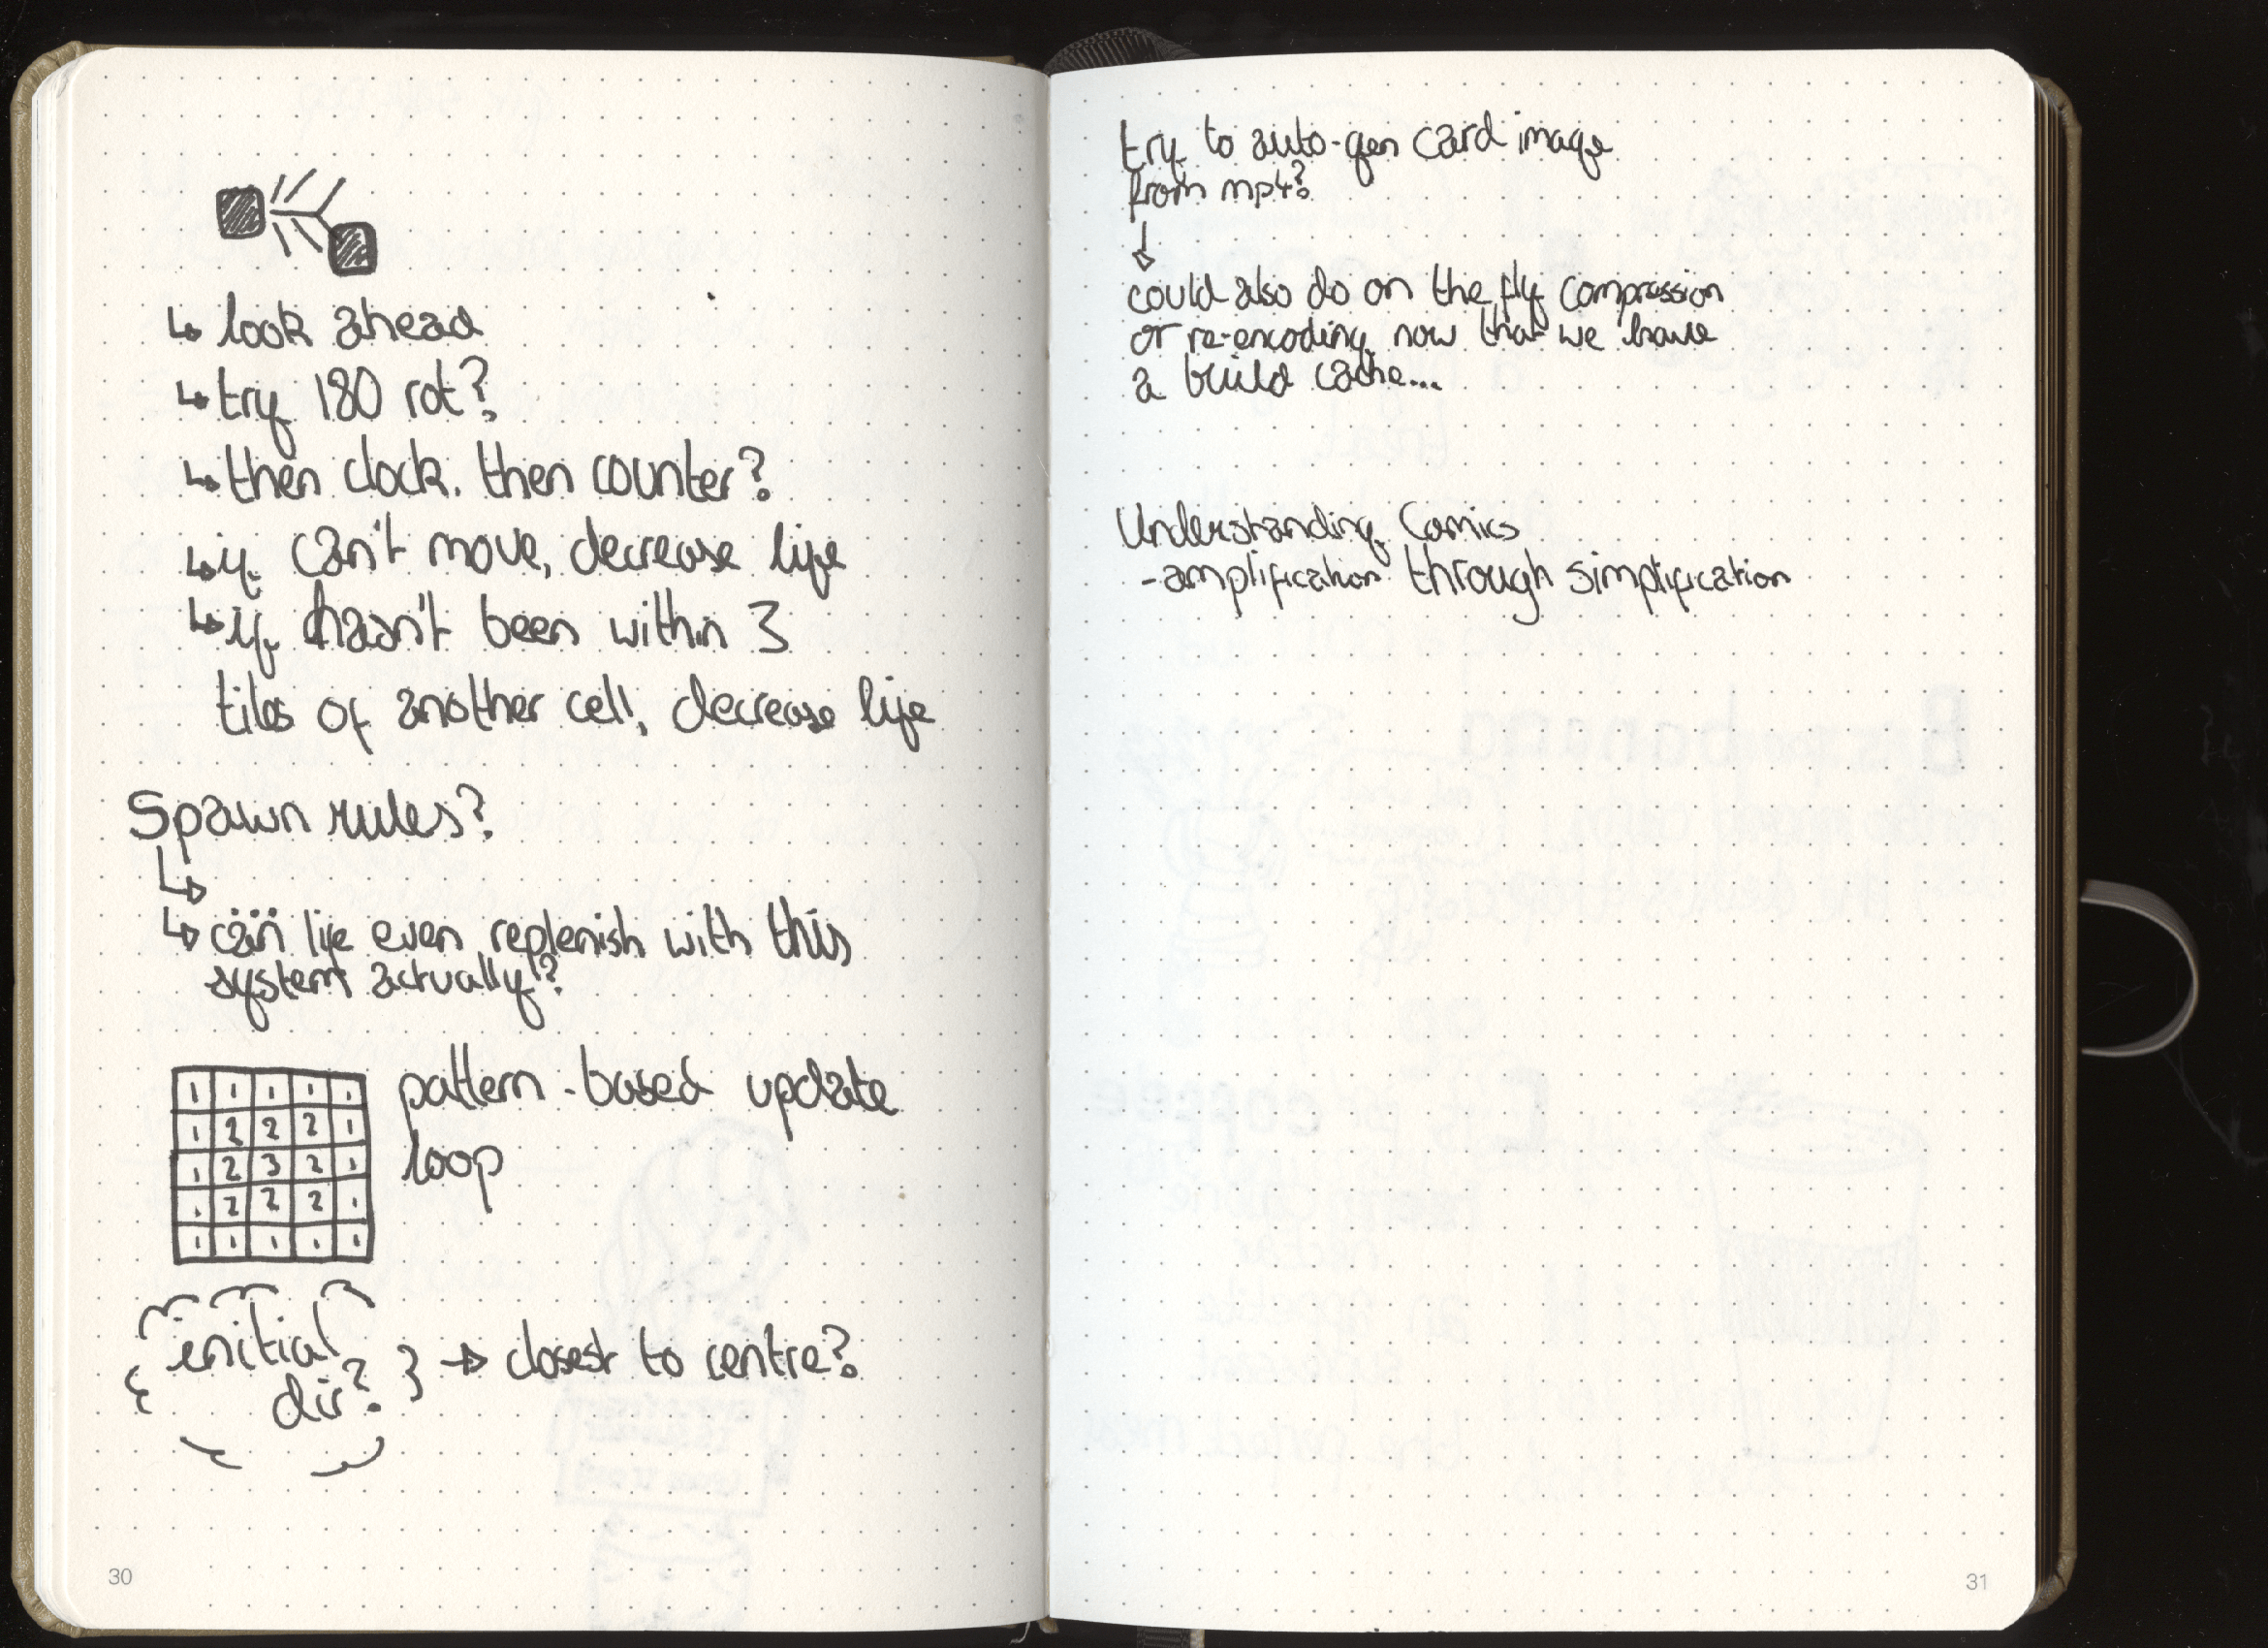 ↳ look ahead
↳ try 180 rot?
↳ then clock. then counter?
↳ if can't move, decrease life
↳ if hasn't been within 3
tiles of another cell, decrease life
Spawn rules?
↳
↳ can life even replenish with this
system actually?
1 1 1 1 1
1 2 2 2 1
1 2 3 2 1
1 2 2 2 1
1 1 1 1 1
pattern-based update
loop
initial
dir? → closest to centre?
30
try to auto-gen card image
from mp4?
↓
could also do on the fly compression
or re-encoding now that we have
a build cache...
Understanding Comics
- amplification through simplification
31